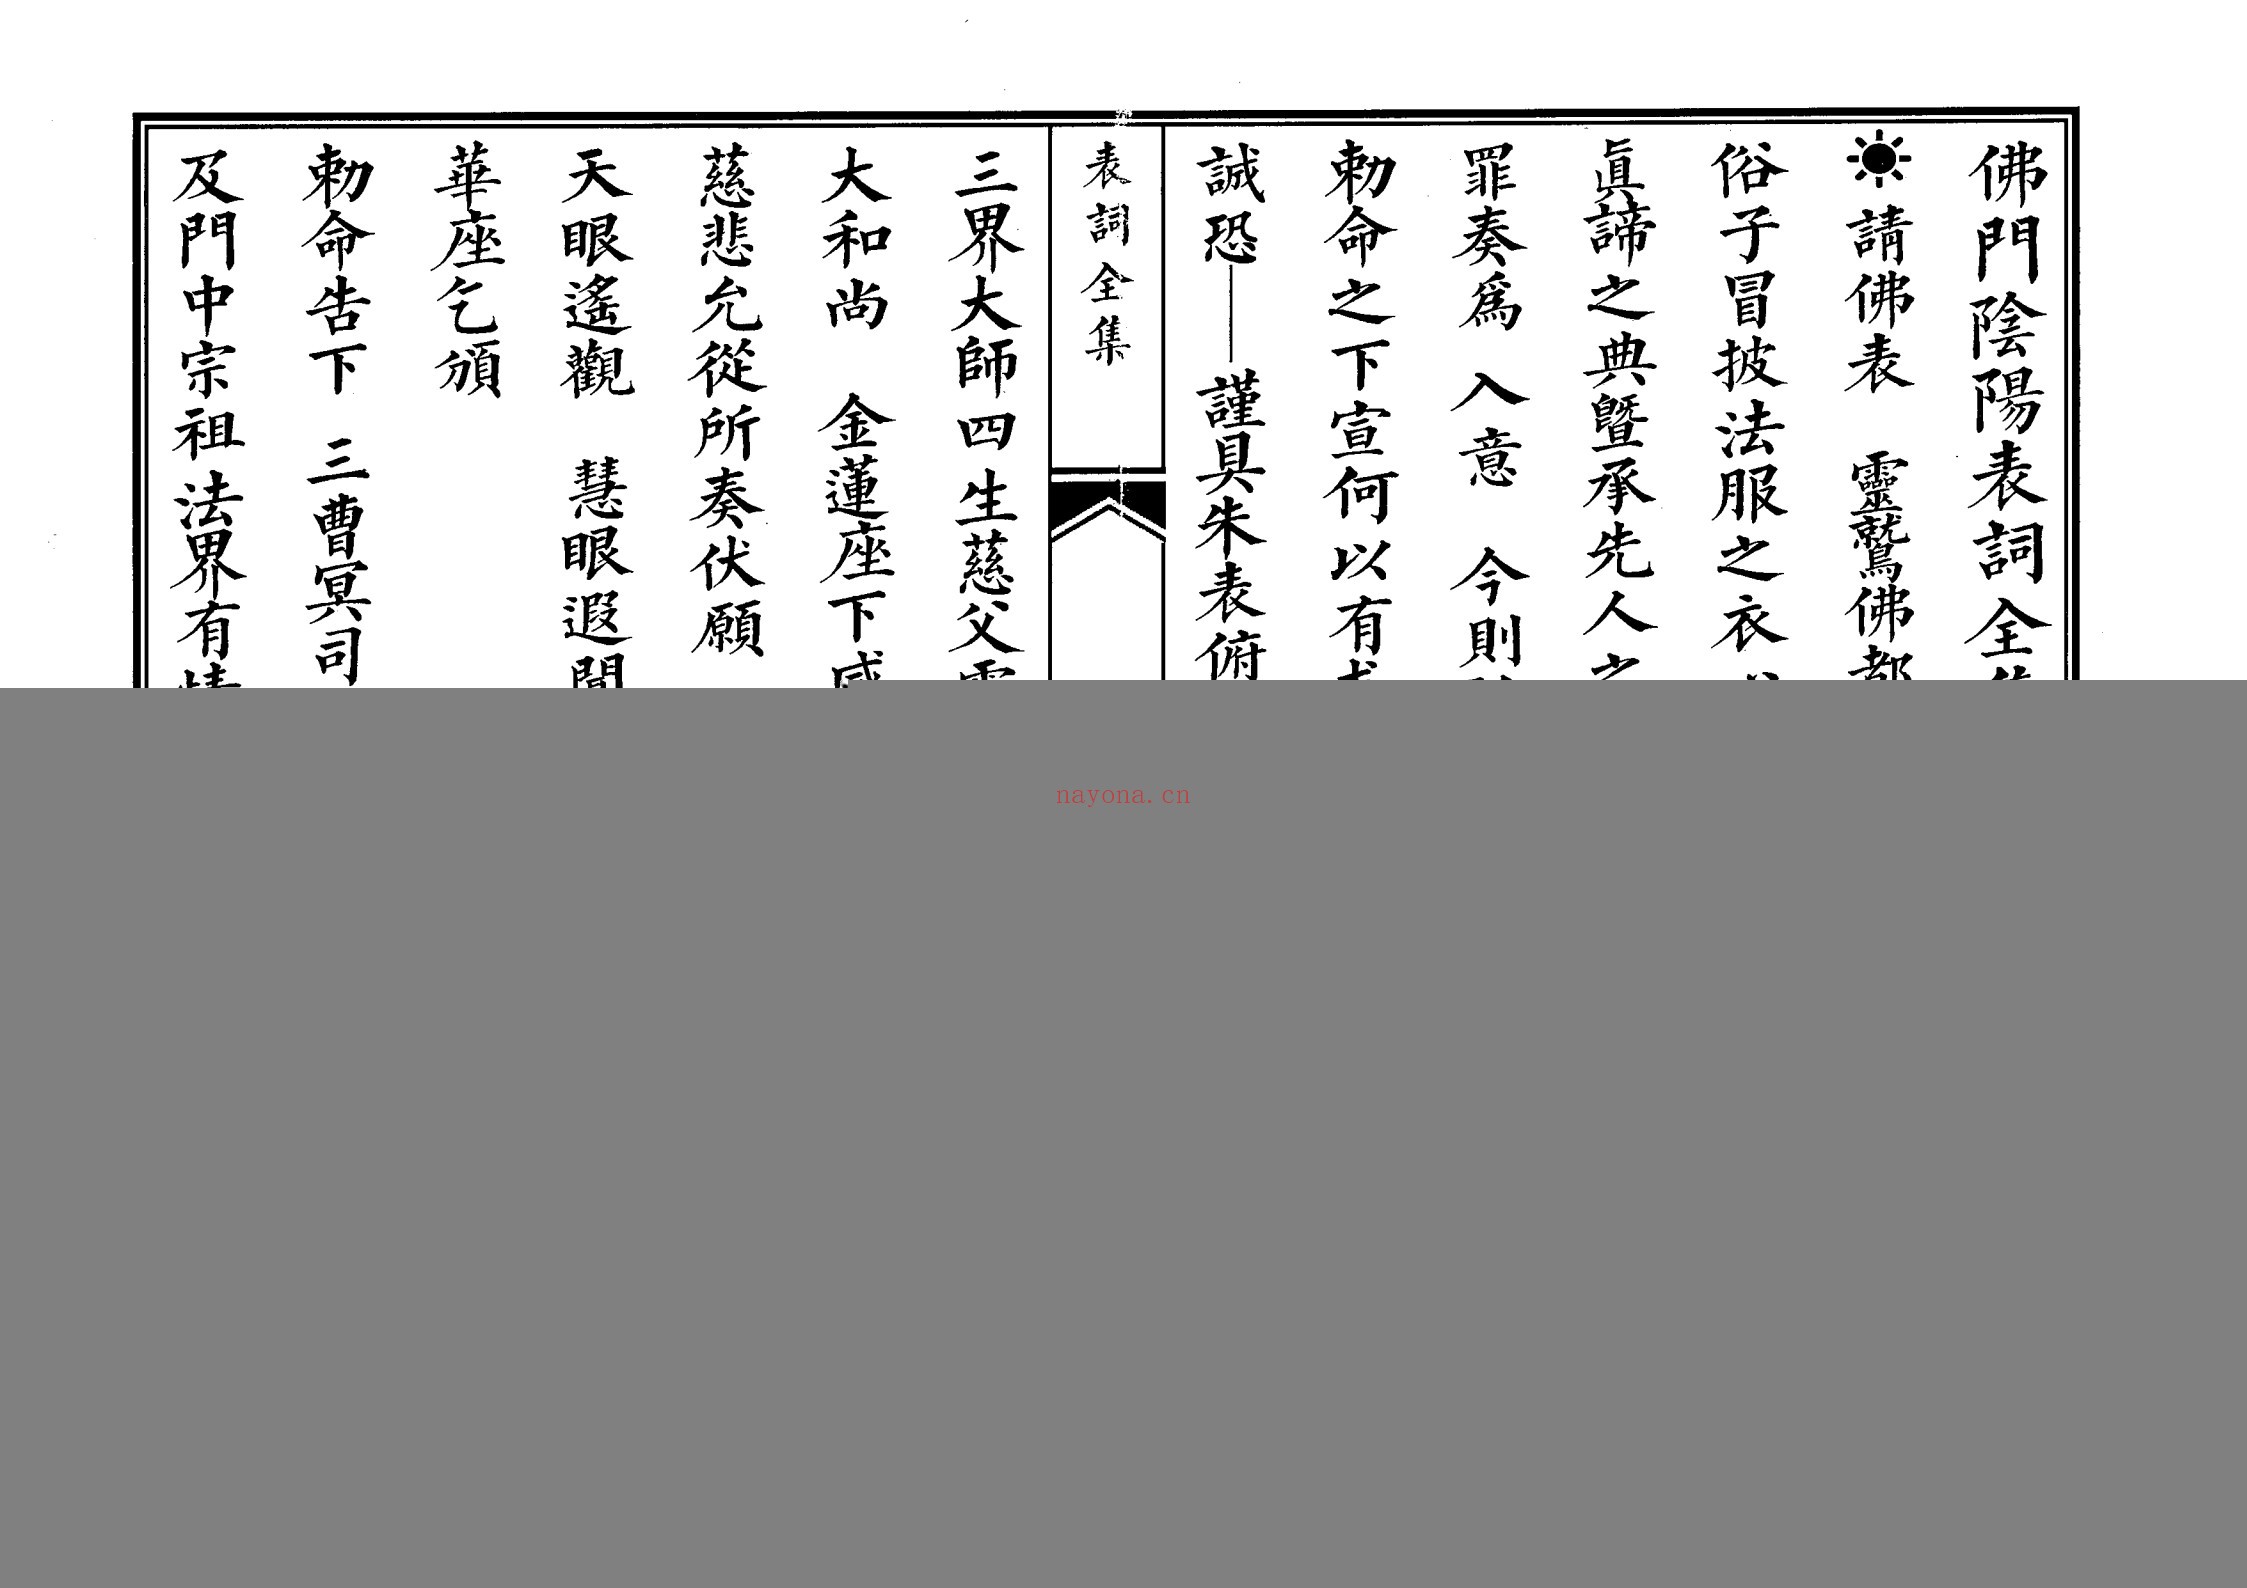 佛門陰陽表詞全
請佛表 靈鷲佛都
俗子冒披法服之衣
眞諦之典暨承先人之
罪奏爲 入意 今則
勅命之下宣何以有
誠恐——謹具朱表俯
表詞全集
三界大師四生慈父
大和尚 金蓮座下
慈悲允從所奏伏願
天眼遙觀 慧眼遐聞
華座乞頒
勅命告下 三曹冥司
及門中宗祖法界有情
nayona.cn